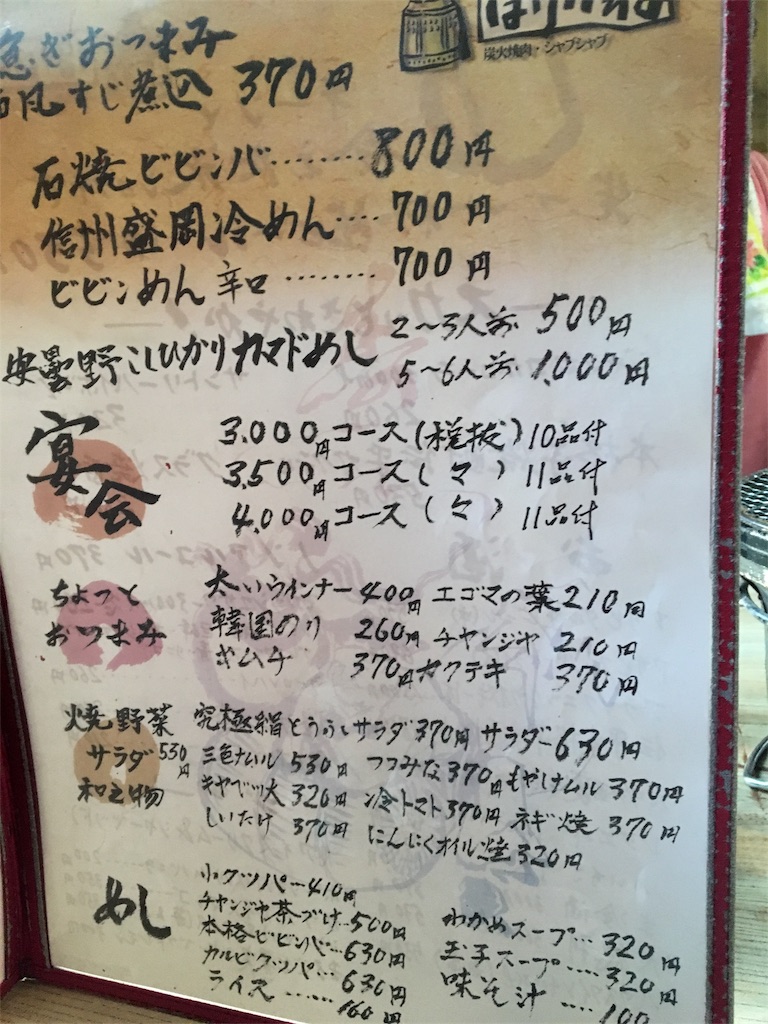 急ぎおつまみ
すじ煮込 370円
炭火焼肉・シャブシャブ
石焼ビビンバ........800円
信州盛岡冷めん....700円
ビビンめん 辛口........700円
安曇野こしひかりカマドめし 2〜3人前 500円
5〜6人前 1,000円
宴会
3.000円コース(税抜)10品付
3,500円コース(々)11品付
4,000円コース(々)11品付
ちょっと
おつまみ
太いウインナー400円 エゴマの葉210円
韓国のり 260円 チャンジャ 210円
キムチ 370円 カクテキ 370円
焼野菜
サラダ530円
和え物
究極絹とうふサラダ370円 サラダー630円
三色ナムル 530円 つつみな370円 もやしナムル 370円
キャベツ大 320円 冷トマト370円 ネギ焼 370円
しいたけ 370円 にんにくオイル焼320円
めし
小クッパー410円
チャンジャ茶づけ...500円
本格ビビンバ...630円
カルビクッパ...630円
ライス......160円
わかめスープ...320円
玉子スープ....320円
味そ汁....100